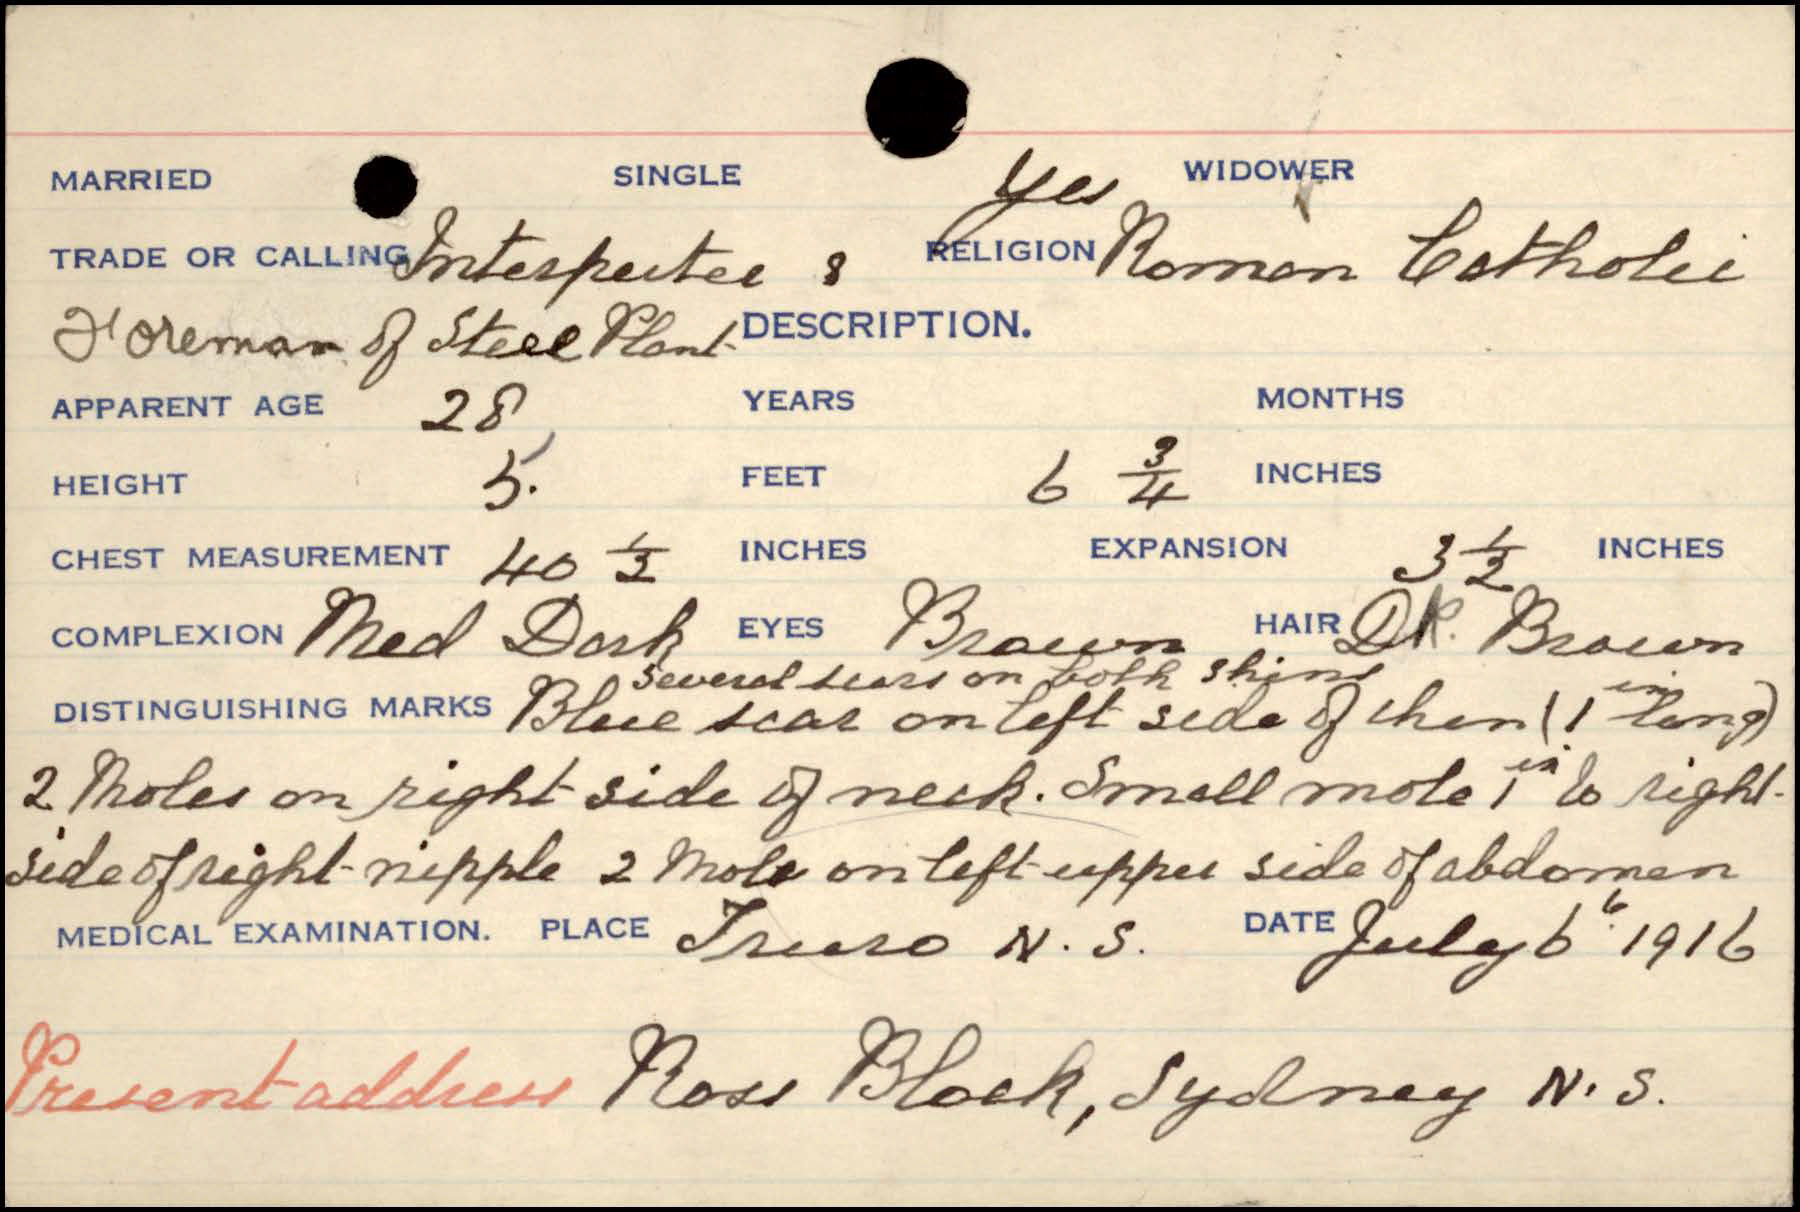 MARRIED SINGLE Yes WIDOWER
TRADE OR CALLING Interpeter & RELIGION Roman Catholic
Foreman of Steel Plant DESCRIPTION.
APPARENT AGE 28 YEARS MONTHS
HEIGHT 5. FEET 6 3/4 INCHES
CHEST MEASUREMENT 40 1/2 INCHES EXPANSION 3 1/2 INCHES
COMPLEXION Med Dark EYES Brown HAIR DK. Brown
Several scars on both shins
DISTINGUISHING MARKS Blue scar on left side of chin (1 in long)
2 Moles on right side of neck. Small mole 1 in to right
side of right nipple 2 Mole on left upper side of abdomen
MEDICAL EXAMINATION. PLACE Truro N. S. DATE July 6 1916
Present address Ross Block, Sydney N. S.